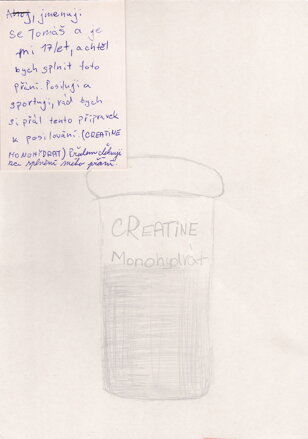 Ahoj, jmenuji
se Tomáš a je
mi 17let, a chtěl
bych splnit toto
přání. Posiluji a
sportuji, rád bych
si přál tento přípravek
k posilování (CREATINE
MONOHYDRAT) Předem děkuji
za splnění mého přání.
CREATINE
Monohydrát